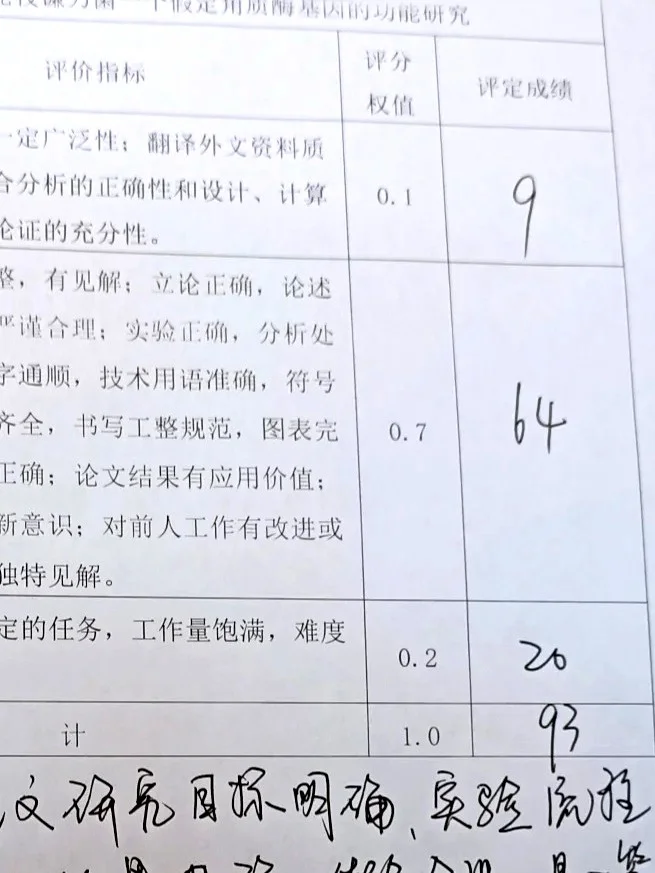 一个假定角质酶基因的功能研究
评价指标
评分
权值
评定成绩
一定广泛性；翻译外文资料质
合分析的正确性和设计、计算
论证的充分性。
0.1
9
整，有见解；立论正确，论述
严谨合理；实验正确，分析处
字通顺，技术用语准确，符号
齐全，书写工整规范，图表完
正确；论文结果有应用价值；
新意识；对前人工作有改进或
独特见解。
0.7
64
定的任务，工作量饱满，难度
0.2
20
计
1.0
93
文研究目标明确、实验流程